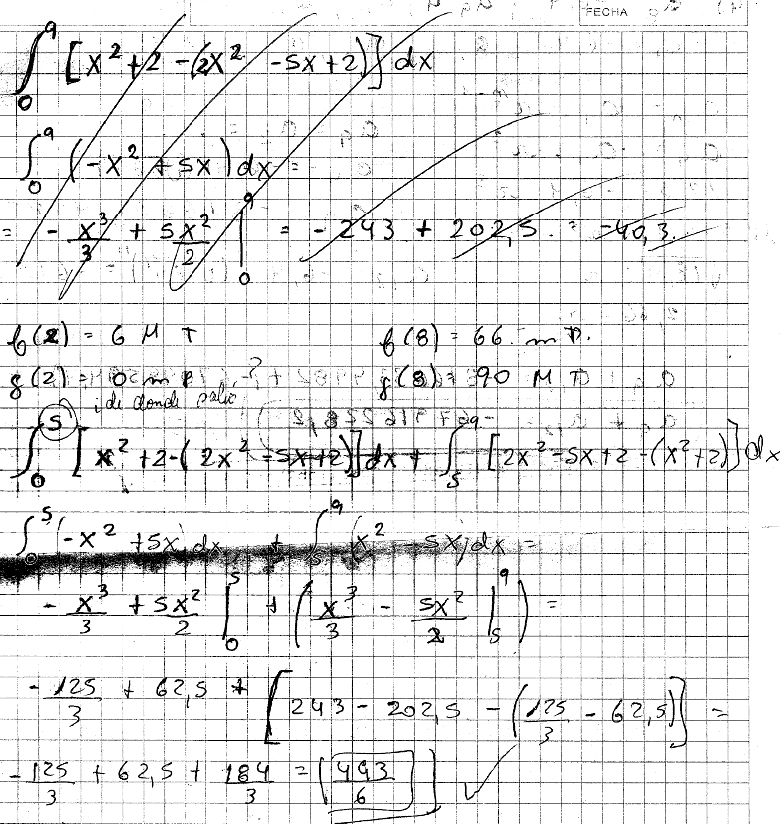 FECHA
∫₀⁹ [x² + 2 - (2x² - 5x + 2)] dx
∫₀⁹ (-x² + 5x) dx =
= - x³/3 + 5x²/2 |₀⁹ = - 243 + 202,5 = -40,3
f(2) = 6 M T f(8) = 66 m P.
g(2) = 0 m P g(8) = 90 M T
¿de donde salio?
∫₀⁵ [x² + 2 - (2x² - 5x + 2)] dx + ∫₅⁹ [2x² - 5x + 2 - (x² + 2)] dx
∫₀⁵ (-x² + 5x) dx + ∫₅⁹ (x² - 5x) dx =
- x³/3 + 5x²/2 |₀⁵ + (x³/3 - 5x²/2 |₅⁹) =
- 125/3 + 62,5 + [243 - 202,5 - (125/3 - 62,5)] =
- 125/3 + 62,5 + 184/3 = [493/6] ✓